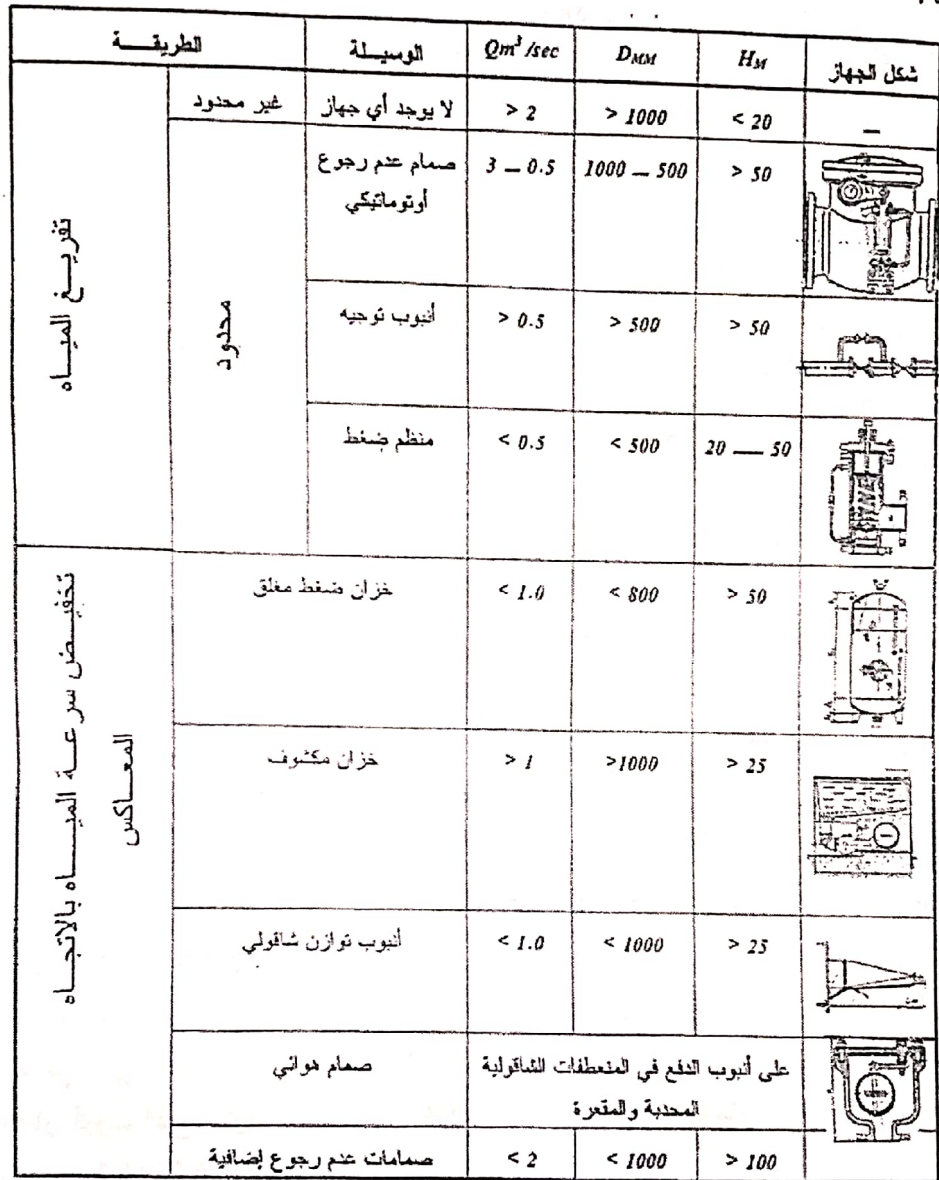 الطريقــــة الوسيـــلة Qm³/sec D_MM H_M شكل الجهاز
تفريـــغ الميـــاه
غير محدود لا يوجد أي جهاز > 2 > 1000 < 20 –
محدود
صمام عدم رجوع 3 – 0.5 1000 – 500 > 50
أوتوماتيكي
أنبوب توجيه > 0.5 > 500 > 50
منظم ضغط < 0.5 < 500 20 — 50
تخفيـــض سرعـــة الميـــاه بالاتجـــاه
المعـــاكس
خزان ضغط مغلق < 1.0 < 800 > 50
خزان مكشوف > 1 >1000 > 25
أنبوب توازن شاقولي < 1.0 < 1000 > 25
صمام هوائي على أنبوب الدفع في المنعطفات الشاقولية
المحدبة والمقعرة
صمامات عدم رجوع إضافية < 2 < 1000 > 100